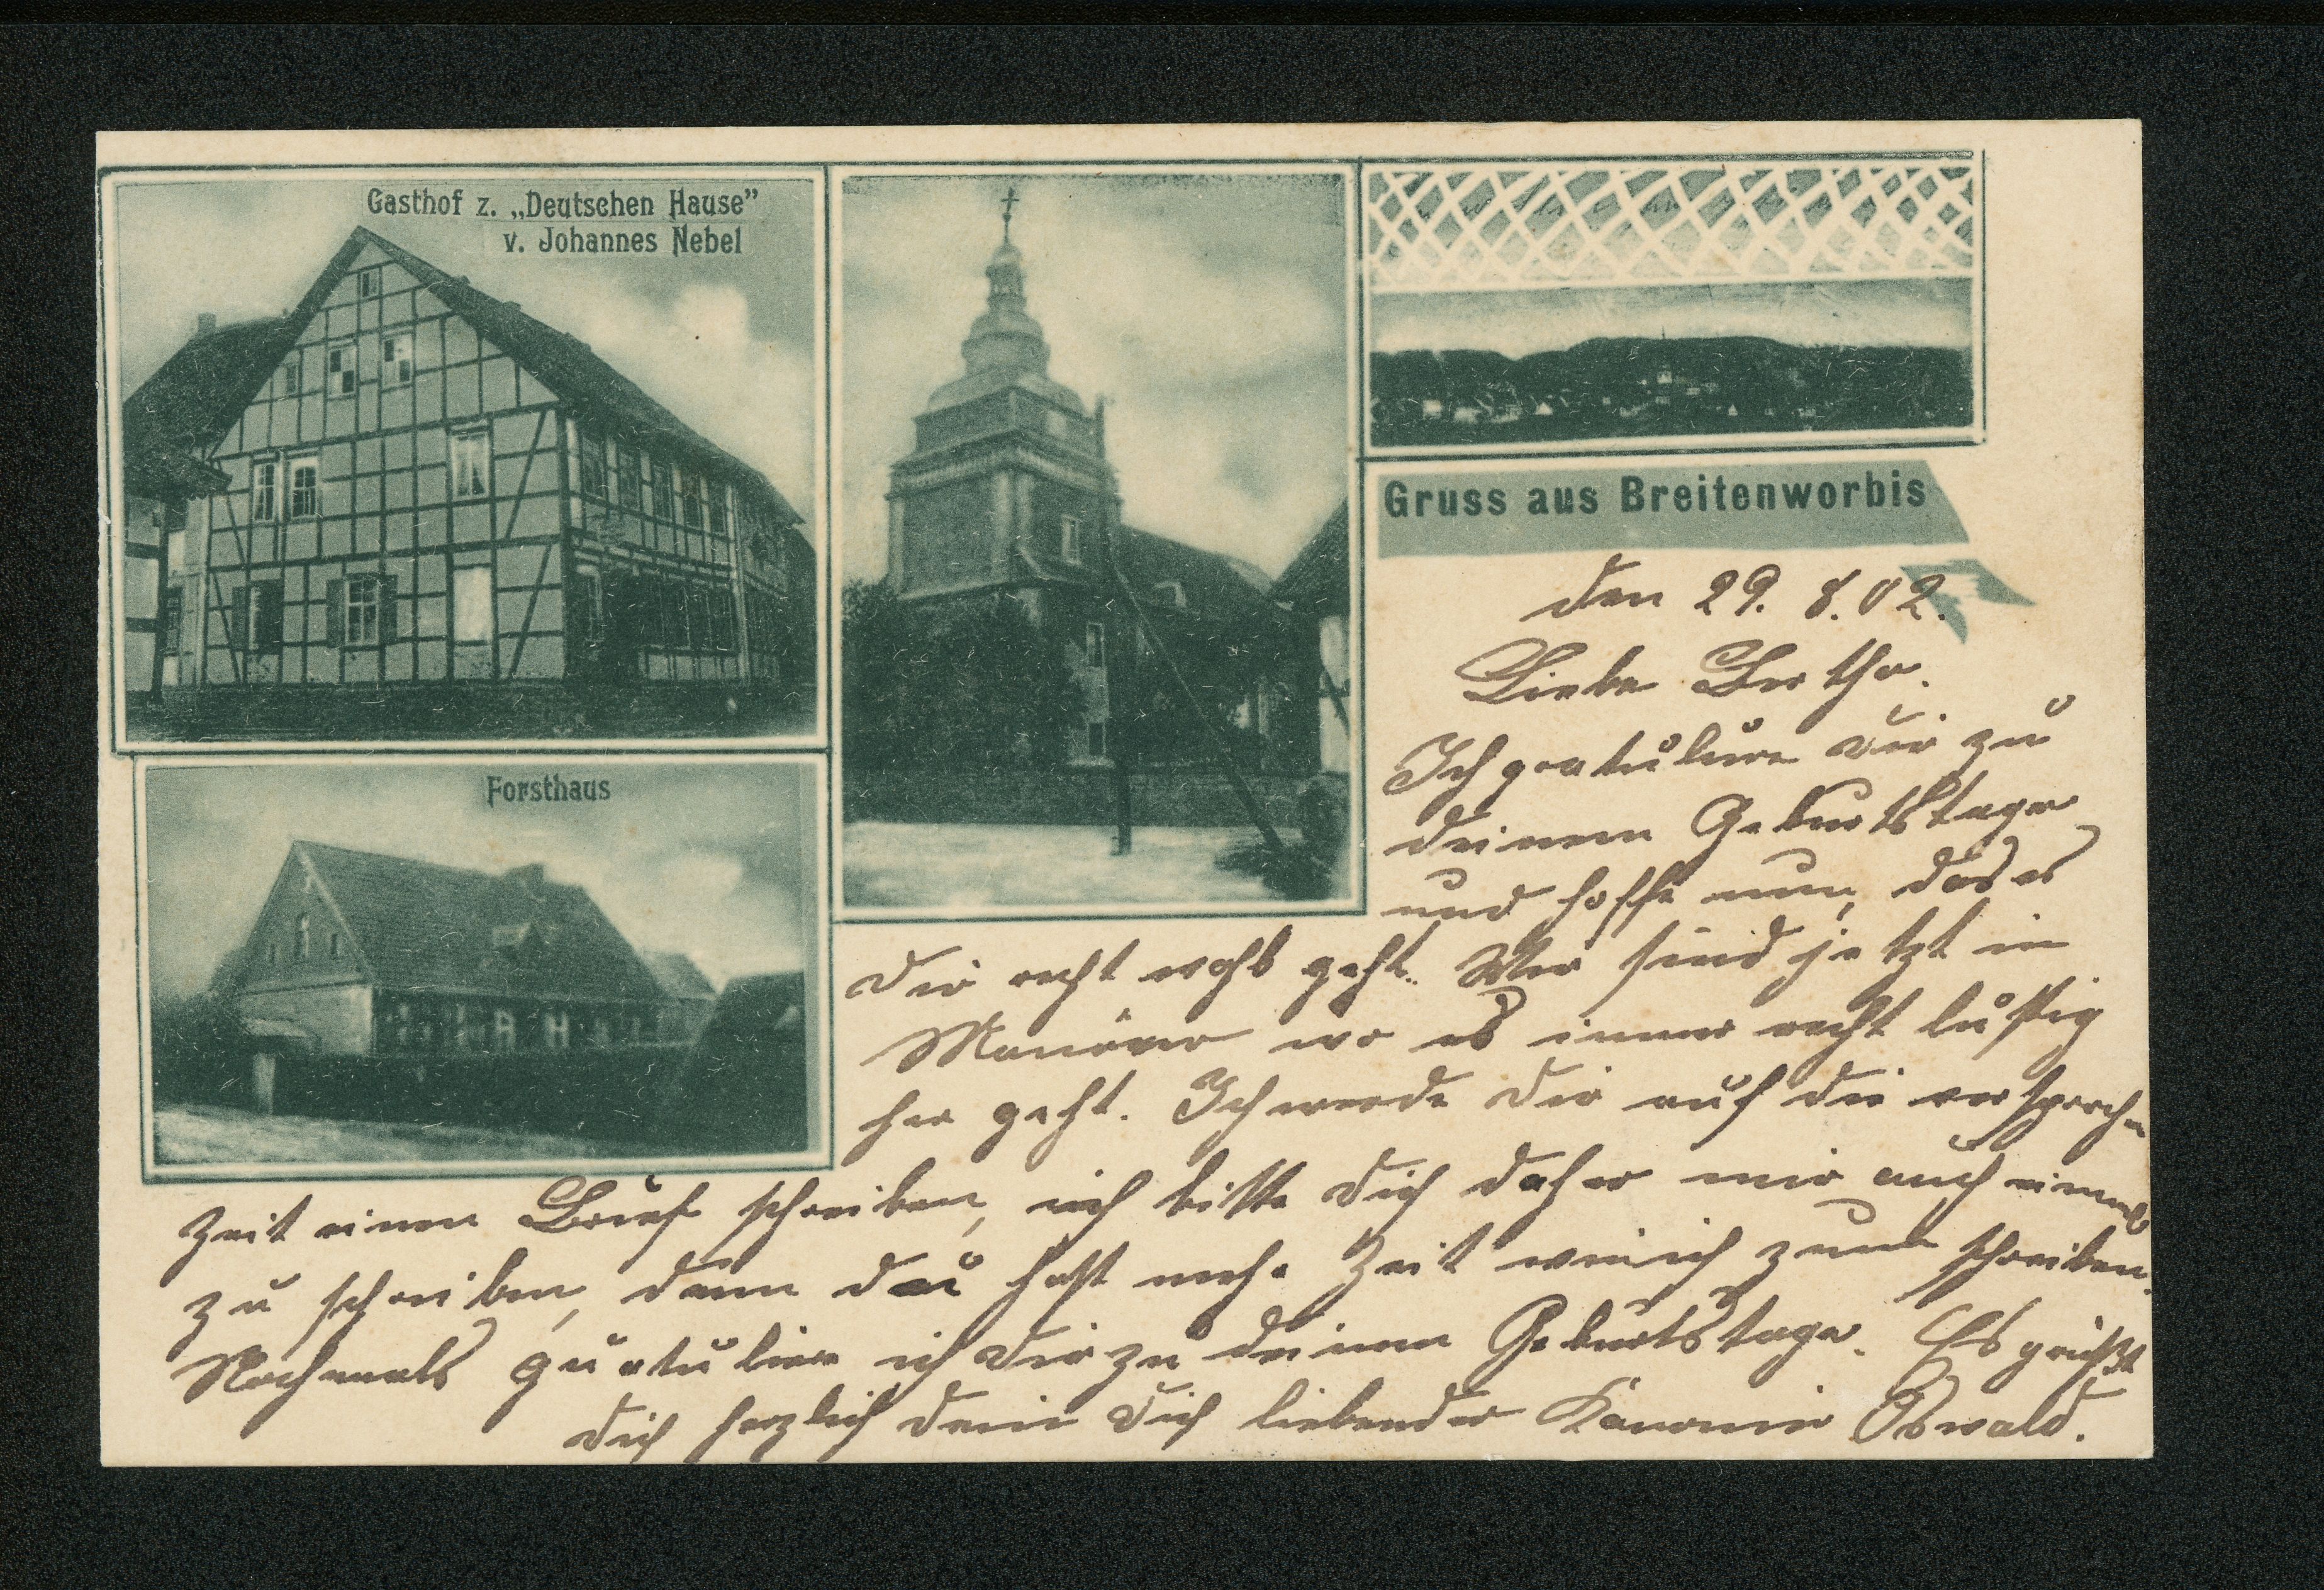 Gasthof z. „Deutschen Hause”
v. Johannes Nebel
Forsthaus
Gruss aus Breitenworbis
den 29. 8. 02.
Liebe Bertha.
Ich gratulire dir zu
deinem Geburtstage
und hoffe nun, das es
dir recht wohl geht. Wir sind jetzt in
Manöver wo es immer recht lustig
her geht. Ich werde dir auf die versprochen
Zeit einen Brief schreiben, ich bitte dich daher mir auch einmal
zu schreiben, denn du hast mehr Zeit wie ich zum schreiben.
Nochmals guatuliere ich dir zu deinem Geburtstage. Es grüßt
dich herzlich dein dich liebender Kanonier Oswald.